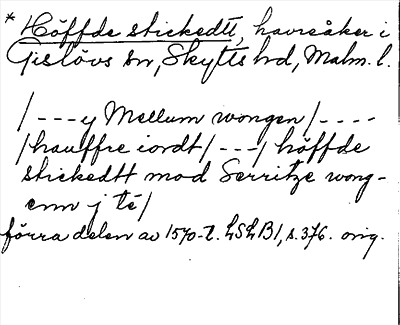 * Höffde stickedtt, havreåker i
Gislövs sn, Skytts hd, Malm. l.
/---y Mellum wongen/----
/hauffre iordt/---/höffde
stickedtt mod Serritze wong-
enn j té/
förra delen av 1570-t. LSLB1, s. 376. orig.